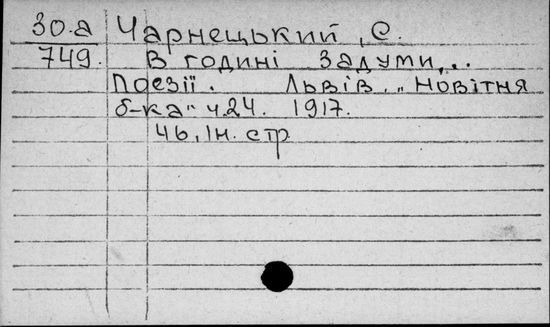 30.а Чарнецький, С.
749. В годині задуми...
Поезії. Львів. „Новітня
б-ка" ч.24. 1917.
46, Ін. стр